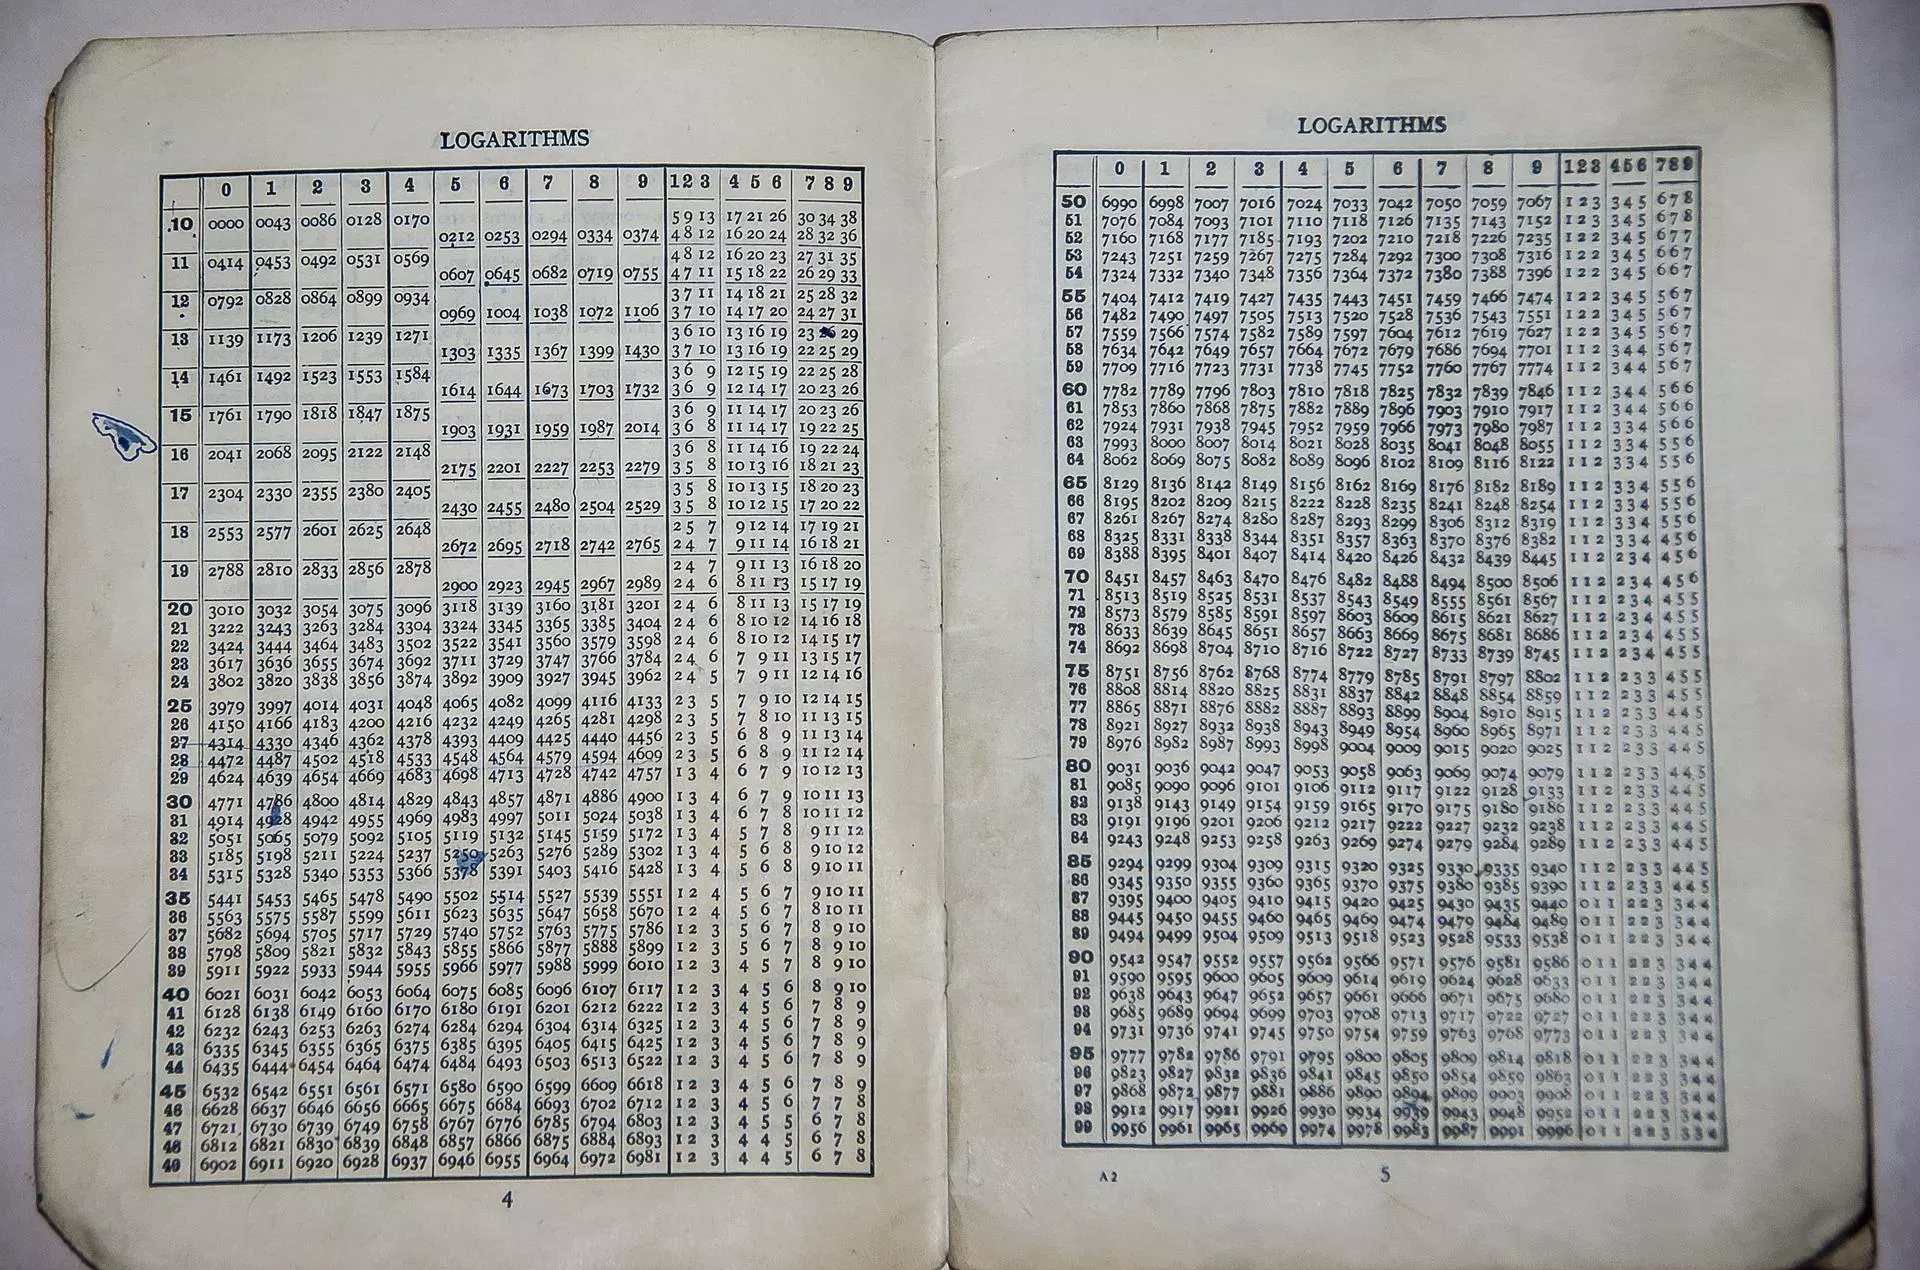 LOGARITHMS
0 1 2 3 4 5 6 7 8 9 1 2 3 4 5 6 7 8 9
10 0000 0043 0086 0128 0170 5 9 13 17 21 26 30 34 38
0212 0253 0294 0334 0374 4 8 12 16 20 24 28 32 36
11 0414 0453 0492 0531 0569 4 8 12 16 20 23 27 31 35
0607 0645 0682 0719 0755 4 7 11 15 18 22 26 29 33
12 0792 0828 0864 0899 0934 3 7 11 14 18 21 25 28 32
0969 1004 1038 1072 1106 3 7 10 14 17 20 24 27 31
13 1139 1173 1206 1239 1271 3 6 10 13 16 19 23 26 29
1303 1335 1367 1399 1430 3 7 10 13 16 19 22 25 29
14 1461 1492 1523 1553 1584 3 6 9 12 15 19 22 25 28
1614 1644 1673 1703 1732 3 6 9 12 14 17 20 23 26
15 1761 1790 1818 1847 1875 3 6 9 11 14 17 20 23 26
1903 1931 1959 1987 2014 3 6 8 11 14 17 19 22 25
16 2041 2068 2095 2122 2148 3 6 8 11 14 16 19 22 24
2175 2201 2227 2253 2279 3 5 8 10 13 16 18 21 23
17 2304 2330 2355 2380 2405 3 5 8 10 13 15 18 20 23
2430 2455 2480 2504 2529 3 5 8 10 12 15 17 20 22
18 2553 2577 2601 2625 2648 2 5 7 9 12 14 17 19 21
2672 2695 2718 2742 2765 2 4 7 9 11 14 16 18 21
19 2788 2810 2833 2856 2878 2 4 7 9 11 13 16 18 20
2900 2923 2945 2967 2989 2 4 6 8 11 13 15 17 19
20 3010 3032 3054 3075 3096 3118 3139 3160 3181 3201 2 4 6 8 11 13 15 17 19
21 3222 3243 3263 3284 3304 3324 3345 3365 3385 3404 2 4 6 8 10 12 14 16 18
22 3424 3444 3464 3483 3502 3522 3541 3560 3579 3598 2 4 6 8 10 12 14 15 17
23 3617 3636 3655 3674 3692 3711 3729 3747 3766 3784 2 4 6 7 9 11 13 15 17
24 3802 3820 3838 3856 3874 3892 3909 3927 3945 3962 2 4 5 7 9 11 12 14 16
25 3979 3997 4014 4031 4048 4065 4082 4099 4116 4133 2 3 5 7 9 10 12 14 15
26 4150 4166 4183 4200 4216 4232 4249 4265 4281 4298 2 3 5 7 8 10 11 13 15
27 4314 4330 4346 4362 4378 4393 4409 4425 4440 4456 2 3 5 6 8 9 11 13 14
28 4472 4487 4502 4518 4533 4548 4564 4579 4594 4609 2 3 5 6 8 9 11 12 14
29 4624 4639 4654 4669 4683 4698 4713 4728 4742 4757 1 3 4 6 7 9 10 12 13
30 4771 4786 4800 4814 4829 4843 4857 4871 4886 4900 1 3 4 6 7 9 10 11 13
31 4914 4928 4942 4955 4969 4983 4997 5011 5024 5038 1 3 4 6 7 8 10 11 12
32 5051 5065 5079 5092 5105 5119 5132 5145 5159 5172 1 3 4 5 7 8 9 11 12
33 5185 5198 5211 5224 5237 5250 5263 5276 5289 5302 1 3 4 5 6 8 9 10 12
34 5315 5328 5340 5353 5366 5378 5391 5403 5416 5428 1 3 4 5 6 8 9 10 11
35 5441 5453 5465 5478 5490 5502 5514 5527 5539 5551 1 2 4 5 6 7 9 10 11
36 5563 5575 5587 5599 5611 5623 5635 5647 5658 5670 1 2 4 5 6 7 8 10 11
37 5682 5694 5705 5717 5729 5740 5752 5763 5775 5786 1 2 3 5 6 7 8 9 10
38 5798 5809 5821 5832 5843 5855 5866 5877 5888 5899 1 2 3 5 6 7 8 9 10
39 5911 5922 5933 5944 5955 5966 5977 5988 5999 6010 1 2 3 4 5 7 8 9 10
40 6021 6031 6042 6053 6064 6075 6085 6096 6107 6117 1 2 3 4 5 6 8 9 10
41 6128 6138 6149 6160 6170 6180 6191 6201 6212 6222 1 2 3 4 5 6 7 8 9
42 6232 6243 6253 6263 6274 6284 6294 6304 6314 6325 1 2 3 4 5 6 7 8 9
43 6335 6345 6355 6365 6375 6385 6395 6405 6415 6425 1 2 3 4 5 6 7 8 9
44 6435 6444 6454 6464 6474 6484 6493 6503 6513 6522 1 2 3 4 5 6 7 8 9
45 6532 6542 6551 6561 6571 6580 6590 6599 6609 6618 1 2 3 4 5 6 7 8 9
46 6628 6637 6646 6656 6665 6675 6684 6693 6702 6712 1 2 3 4 5 6 7 7 8
47 6721 6730 6739 6749 6758 6767 6776 6785 6794 6803 1 2 3 4 5 5 6 7 8
48 6812 6821 6830 6839 6848 6857 6866 6875 6884 6893 1 2 3 4 4 5 6 7 8
49 6902 6911 6920 6928 6937 6946 6955 6964 6972 6981 1 2 3 4 4 5 6 7 8
4
LOGARITHMS
0 1 2 3 4 5 6 7 8 9 1 2 3 4 5 6 7 8 9
50 6990 6998 7007 7016 7024 7033 7042 7050 7059 7067 1 2 3 3 4 5 6 7 8
51 7076 7084 7093 7101 7110 7118 7126 7135 7143 7152 1 2 3 3 4 5 6 7 8
52 7160 7168 7177 7185 7193 7202 7210 7218 7226 7235 1 2 2 3 4 5 6 7 7
53 7243 7251 7259 7267 7275 7284 7292 7300 7308 7316 1 2 2 3 4 5 6 6 7
54 7324 7332 7340 7348 7356 7364 7372 7380 7388 7396 1 2 2 3 4 5 6 6 7
55 7404 7412 7419 7427 7435 7443 7451 7459 7466 7474 1 2 2 3 4 5 5 6 7
56 7482 7490 7497 7505 7513 7520 7528 7536 7543 7551 1 2 2 3 4 5 5 6 7
57 7559 7566 7574 7582 7589 7597 7604 7612 7619 7627 1 2 2 3 4 5 5 6 7
58 7634 7642 7649 7657 7664 7672 7679 7686 7694 7701 1 1 2 3 4 4 5 6 7
59 7709 7716 7723 7731 7738 7745 7752 7760 7767 7774 1 1 2 3 4 4 5 6 7
60 7782 7789 7796 7803 7810 7818 7825 7832 7839 7846 1 1 2 3 4 4 5 6 6
61 7853 7860 7868 7875 7882 7889 7896 7903 7910 7917 1 1 2 3 4 4 5 6 6
62 7924 7931 7938 7945 7952 7959 7966 7973 7980 7987 1 1 2 3 3 4 5 6 6
63 7993 8000 8007 8014 8021 8028 8035 8041 8048 8055 1 1 2 3 3 4 5 5 6
64 8062 8069 8075 8082 8089 8096 8102 8109 8116 8122 1 1 2 3 3 4 5 5 6
65 8129 8136 8142 8149 8156 8162 8169 8176 8182 8189 1 1 2 3 3 4 5 5 6
66 8195 8202 8209 8215 8222 8228 8235 8241 8248 8254 1 1 2 3 3 4 5 5 6
67 8261 8267 8274 8280 8287 8293 8299 8306 8312 8319 1 1 2 3 3 4 5 5 6
68 8325 8331 8338 8344 8351 8357 8363 8370 8376 8382 1 1 2 3 3 4 4 5 6
69 8388 8395 8401 8407 8414 8420 8426 8432 8439 8445 1 1 2 2 3 4 4 5 6
70 8451 8457 8463 8470 8476 8482 8488 8494 8500 8506 1 1 2 2 3 4 4 5 6
71 8513 8519 8525 8531 8537 8543 8549 8555 8561 8567 1 1 2 2 3 4 4 5 5
72 8573 8579 8585 8591 8597 8603 8609 8615 8621 8627 1 1 2 2 3 4 4 5 5
73 8633 8639 8645 8651 8657 8663 8669 8675 8681 8686 1 1 2 2 3 4 4 5 5
74 8692 8698 8704 8710 8716 8722 8727 8733 8739 8745 1 1 2 2 3 4 4 5 5
75 8751 8756 8762 8768 8774 8779 8785 8791 8797 8802 1 1 2 2 3 3 4 5 5
76 8808 8814 8820 8825 8831 8837 8842 8848 8854 8859 1 1 2 2 3 3 4 5 5
77 8865 8871 8876 8882 8887 8893 8899 8904 8910 8915 1 1 2 2 3 3 4 4 5
78 8921 8927 8932 8938 8943 8949 8954 8960 8965 8971 1 1 2 2 3 3 4 4 5
79 8976 8982 8987 8993 8998 9004 9009 9015 9020 9025 1 1 2 2 3 3 4 4 5
80 9031 9036 9042 9047 9053 9058 9063 9069 9074 9079 1 1 2 2 3 3 4 4 5
81 9085 9090 9096 9101 9106 9112 9117 9122 9128 9133 1 1 2 2 3 3 4 4 5
82 9138 9143 9149 9154 9159 9165 9170 9175 9180 9186 1 1 2 2 3 3 4 4 5
83 9191 9196 9201 9206 9212 9217 9222 9227 9232 9238 1 1 2 2 3 3 4 4 5
84 9243 9248 9253 9258 9263 9269 9274 9279 9284 9289 1 1 2 2 3 3 4 4 5
85 9294 9299 9304 9309 9315 9320 9325 9330 9335 9340 1 1 2 2 3 3 4 4 5
86 9345 9350 9355 9360 9365 9370 9375 9380 9385 9390 1 1 2 2 3 3 4 4 5
87 9395 9400 9405 9410 9415 9420 9425 9430 9435 9440 0 1 1 2 2 3 3 4 4
88 9445 9450 9455 9460 9465 9469 9474 9479 9484 9489 0 1 1 2 2 3 3 4 4
89 9494 9499 9504 9509 9513 9518 9523 9528 9533 9538 0 1 1 2 2 3 3 4 4
90 9542 9547 9552 9557 9562 9566 9571 9576 9581 9586 0 1 1 2 2 3 3 4 4
91 9590 9595 9600 9605 9609 9614 9619 9624 9628 9633 0 1 1 2 2 3 3 4 4
92 9638 9643 9647 9652 9657 9661 9666 9671 9675 9680 0 1 1 2 2 3 3 4 4
93 9685 9689 9694 9699 9703 9708 9713 9717 9722 9727 0 1 1 2 2 3 3 4 4
94 9731 9736 9741 9745 9750 9754 9759 9763 9768 9773 0 1 1 2 2 3 3 4 4
95 9777 9782 9786 9791 9795 9800 9805 9809 9814 9818 0 1 1 2 2 3 3 4 4
96 9823 9827 9832 9836 9841 9845 9850 9854 9859 9863 0 1 1 2 2 3 3 4 4
97 9868 9872 9877 9881 9886 9890 9894 9899 9903 9908 0 1 1 2 2 3 3 4 4
98 9912 9917 9921 9926 9930 9934 9939 9943 9948 9952 0 1 1 2 2 3 3 4 4
99 9956 9961 9965 9969 9974 9978 9983 9987 9991 9996 0 1 1 2 2 3 3 3 4
A 2
5